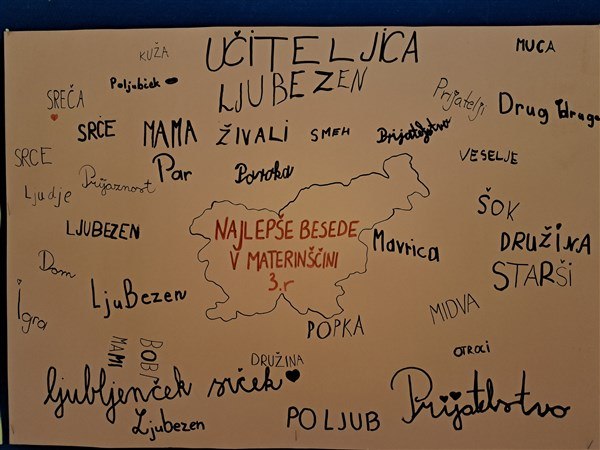 UČITELJICA
KUŽA
MUCA
LJUBEZEN
Poljubček
SREČA
Prijatelji
Drug drugo
SRČE
MAMA
ŽIVALI
SMEH
Prijateljstvo
SRCE
VESELJE
Par
Poroka
Prijaznost
Ljudje
ŠOK
LJUBEZEN
NAJLEPŠE BESEDE
V MATERINŠČINI
3.r
Mavrica
DRUŽINA
Dom
STARŠI
LjuBezen
Igra
MIDVA
POPKA
MAMI
BOBI
DRUŽINA
OTROCI
ljubljenček srček
Prijatelstvo
Ljubezen
POLJUB